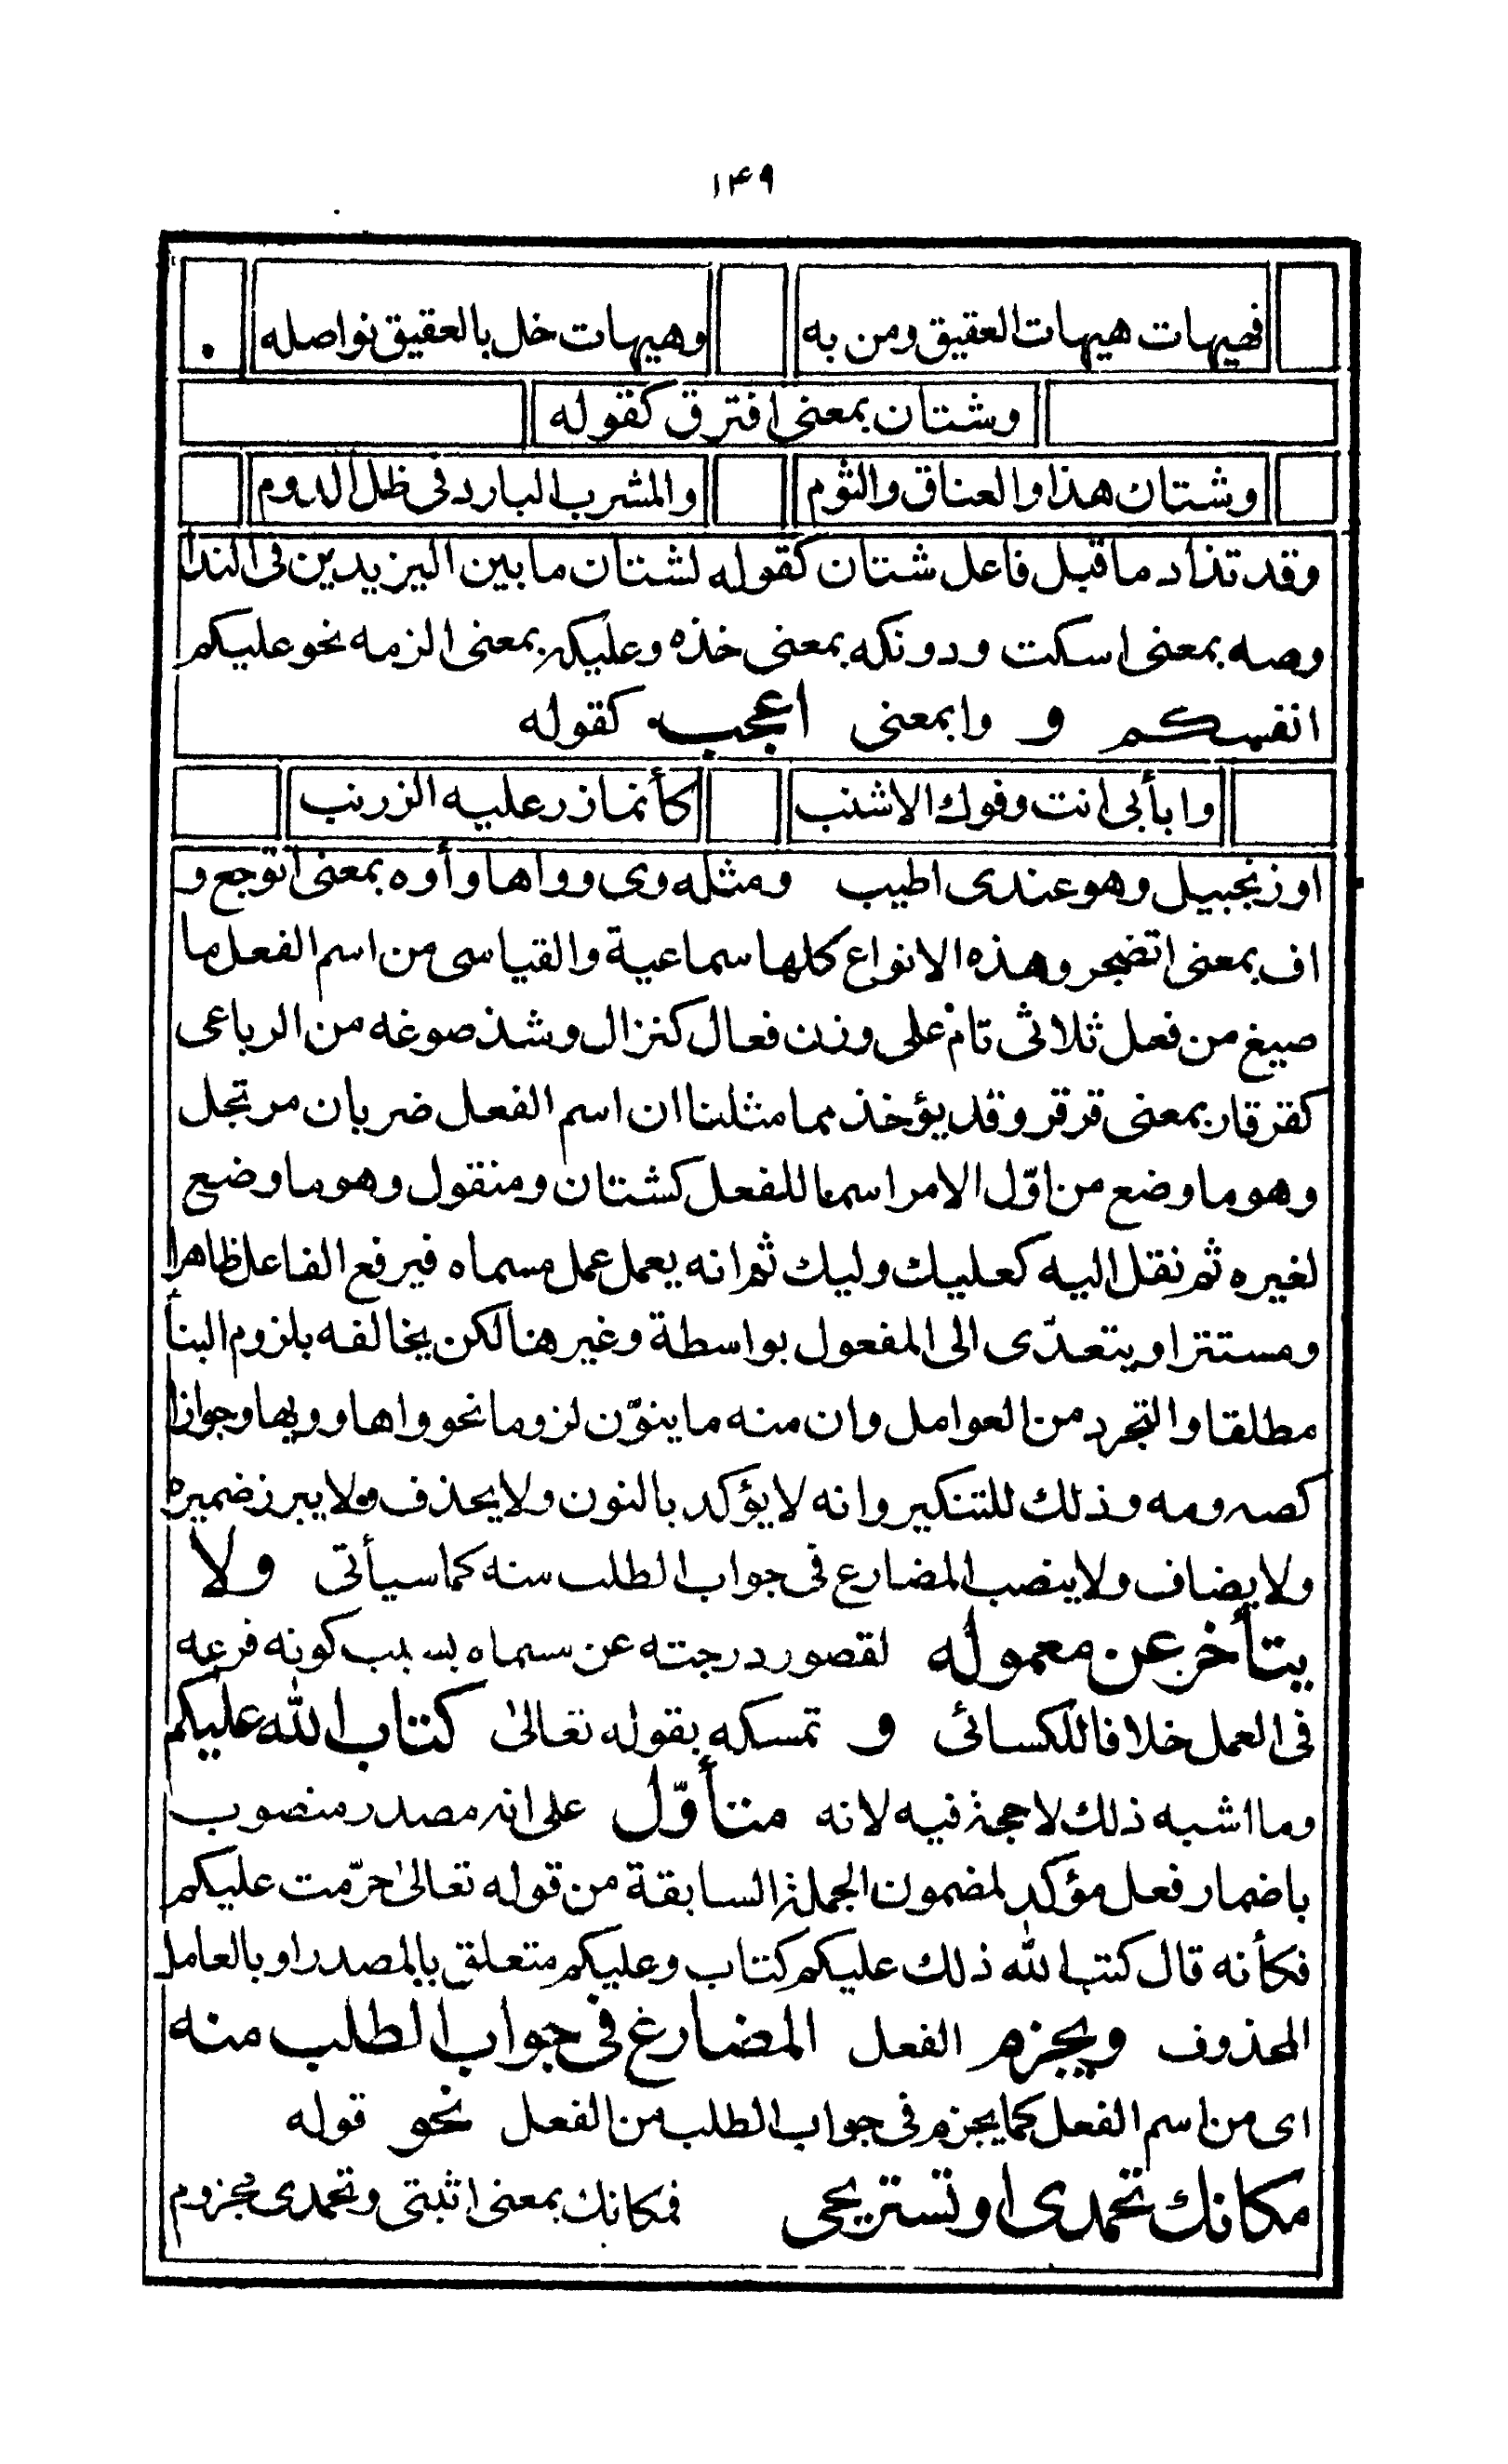 ١۴٩
فهيهات هيهات العقيق ومن به وهيهات خل بالعقيق نواصله
وشتان بمعنى افترق كقوله
وشتان هذا والعناق والنوم والمشرب البارد فى ظل الدوم
وقد تذاد ما قبل فاعل شتان كقوله لشتان ما بين اليزيدين فى الندا
وصه بمعنى اسكت ودونكه بمعنى خذه وعليكه بمعنى الزمه نحو عليكم
انفسكم و وا بمعنى اعجب كقوله
وا بأبى انت وفوك الاشنب كأنما زر عليه الزرنب
او زنجبيل وهو عندى اطيب ومثله وى وواها وأوه بمعنى اتوجع و
اف بمعنى اتضجر وهذه الانواع كلها سماعية والقياسى من اسم الفعل ما
صيغ من فعل ثلاثى تام على وزن فعال كنزال وشذ صوغه من الرباعى
كقرقار بمعنى قرقر وقد يؤخذ مما مثلنا ان اسم الفعل ضربان مرتجل
وهو ما وضع من اوّل الامر اسما للفعل كشتان ومنقول وهو ما وضع
لغيره ثم نقل اليه كعليك وليك ثم انه يعمل عمل مسماه فيرفع الفاعل ظاهرا
ومستترا ويتعدّى الى المفعول بواسطة وغيرها لكن يخالفه بلزوم البنأ
مطلقا والتجرد من العوامل وان منه ما ينوّن لزوما نحو واها وويها وجوازا
كصه ومه وذلك للتنكير وانه لا يؤكد بالنون ولا يحذف ولا يبرز ضميره
ولا يضاف ولا ينصب المضارع فى جواب الطلب منه كما سيأتى ولا
يتأخر عن معموله لقصور درجته عن مسماه بسبب كونه فرعه
فى العمل خلافا للكسائى و تمسكه بقوله تعالىٰ كتاب الله عليكم
وما اشبه ذلك لا حجة فيه لانه متأوّل على انه مصدر منصوب
باضمار فعل مؤكد لمضمون الجملة السابقة من قوله تعالىٰ حرّمت عليكم
فكأنه قال كتب الله ذلك عليكم كتاب وعليكم متعلق بالمصدر او بالعامل
المحذوف ويجزم الفعل المضارع فى جواب الطلب منه
اى من اسم الفعل كما يجزم فى جواب الطلب من الفعل نحو قوله
مكانك تحمدى او تستريحى فمكانك بمعنى اثبتى وتحمدى مجزوم